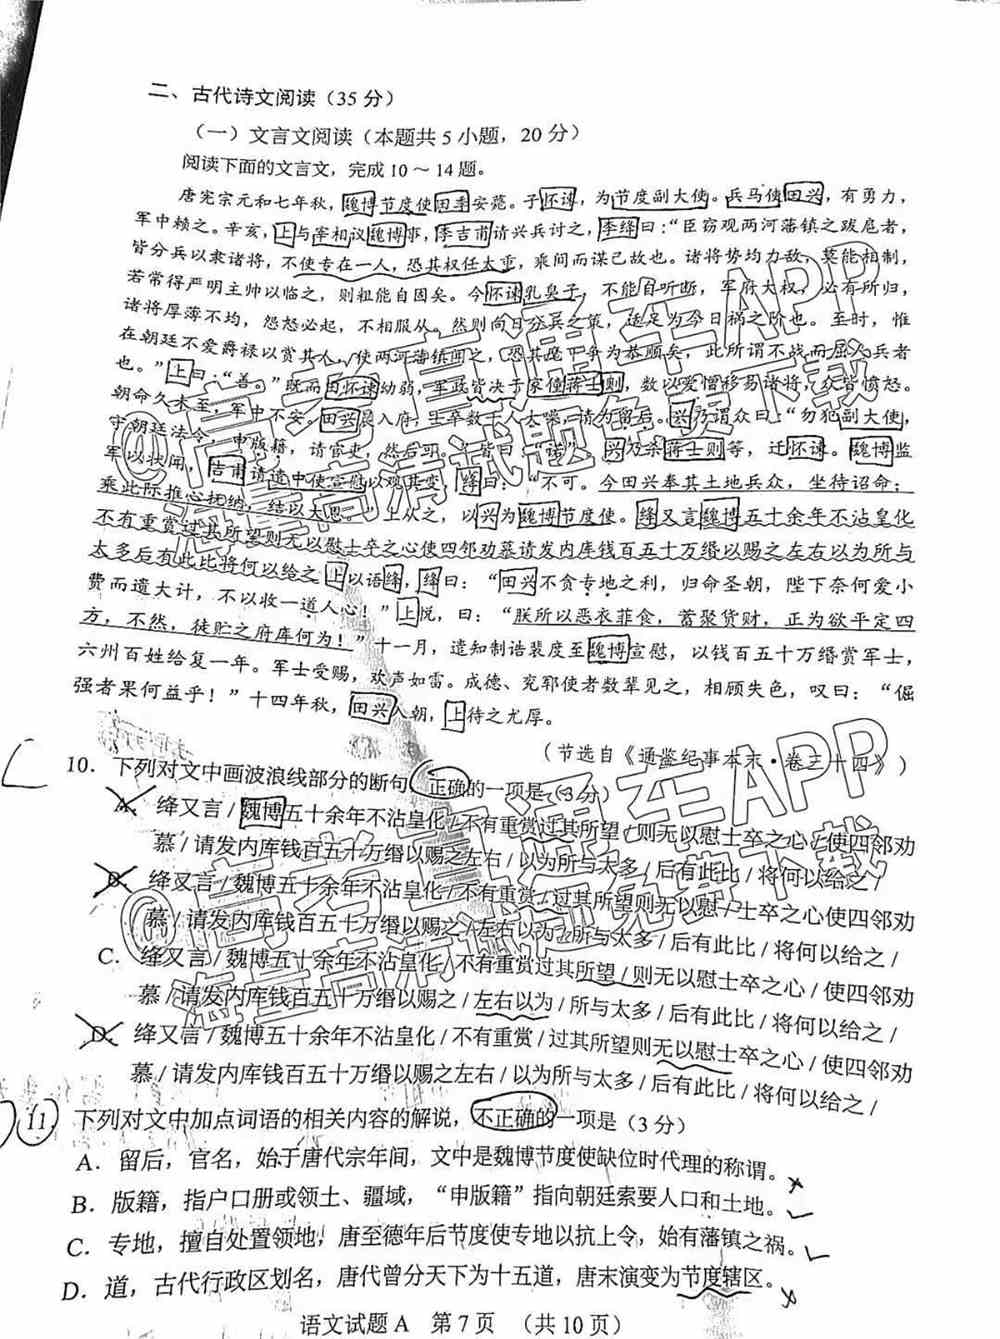 二、古代诗文阅读（35 分）
（一）文言文阅读（本题共 5 小题，20 分）
阅读下面的文言文，完成 10～14 题。
唐宪宗元和七年秋，魏博节度使田季安薨。子怀谏，为节度副大使。兵马使田兴，有勇力，
军中赖之。辛亥，上与宰相议魏博事，李吉甫请兴兵讨之，李绛曰：“臣窃观两河藩镇之跋扈者，
皆分兵以隶诸将，不使专在一人，恐其权任太重，乘间而谋己故也。诸将势均力敌，莫能相制，
若常得严明主帅以临之，则粗能自固矣。今怀谏乳臭子，不能自听断，军府大权，必有所归，
诸将厚薄不均，怨怒必起，不相服从。然则向日分兵之策，适足为今日祸之阶也。至时，惟
在朝廷不爱爵禄以赏其人，使两河藩镇闻之，恐其麾下争为恭顺矣，此所谓不战而屈人兵者
也。”上曰：“善。”既而田怀谏幼弱，军政皆决于家僮蒋士则，数以爱憎移易诸将，众皆愤怒。
朝命久未至，军中不安。田兴晨入府，士卒数千人大噪，请为留后。兴乃谓众曰：“勿犯副大使，
守朝廷法令，申版籍，请官吏，然后可。”皆曰：“诺”。兴乃杀蒋士则等，迁怀谏。魏博监
军以状闻，吉甫请遣中使宣慰以观其变，绛曰：“不可。今田兴奉其土地兵众，坐待诏命；
乘此际推心抚纳，结以大恩。”上从之，以兴为魏博节度使。绛又言魏博五十余年不沾皇化
不有重赏过其所望则无以慰士卒之心使四邻劝慕请发内库钱百五十万缗以赐之左右以为所与
太多后有此比将何以给之上以语绛，绛曰：“田兴不贪专地之利，归命圣朝，陛下奈何爱小
费而遗大计，不以收一道人心！”上悦，曰：“朕所以恶衣菲食，蓄聚货财，正为欲平定四
方，不然，徒贮之府库何为！”十一月，遣知制诰裴度至魏博宣慰，以钱百五十万缗赏军士，
六州百姓给复一年。军士受赐，欢声如雷。成德、兖郓使者数辈见之，相顾失色，叹曰：“倔
强者果何益乎！”十四年秋，田兴入朝，上待之尤厚。
（节选自《通鉴纪事本末·卷三十四》）
10．下列对文中画波浪线部分的断句，正确的一项是（3 分）
A．绛又言/魏博五十余年不沾皇化/不有重赏过其所望/则无以慰士卒之心/使四邻劝
慕/请发内库钱百五十万缗以赐之左右/以为所与太多/后有此比/将何以给之/
B．绛又言/魏博五十余年不沾皇化/不有重赏/过其所望则无以慰/士卒之心使四邻劝
慕/请发内库钱百五十万缗以赐之/左右以为/所与太多/后有此比/将何以给之/
C．绛又言/魏博五十余年不沾皇化/不有重赏过其所望/则无以慰士卒之心/使四邻劝
慕/请发内库钱百五十万缗以赐之/左右以为/所与太多/后有此比/将何以给之/
D．绛又言/魏博五十余年不沾皇化/不有重赏/过其所望则无以慰士卒之心/使四邻劝
慕/请发内库钱百五十万缗以赐之左右/以为所与太多/后有此比/将何以给之/
11．下列对文中加点词语的相关内容的解说，不正确的一项是（3 分）
A．留后，官名，始于唐代宗年间，文中是魏博节度使缺位时代理的称谓。
B．版籍，指户口册或领土、疆域，“申版籍”指向朝廷索要人口和土地。
C．专地，擅自处置领地，唐至德年后节度使专地以抗上令，始有藩镇之祸。
D．道，古代行政区划名，唐代曾分天下为十五道，唐末演变为节度辖区。
语文试题 A 第 7 页 （共 10 页）
@高考直通车APP
海量高清试题免费下载
@高考直通车APP
海量高清试题免费下载